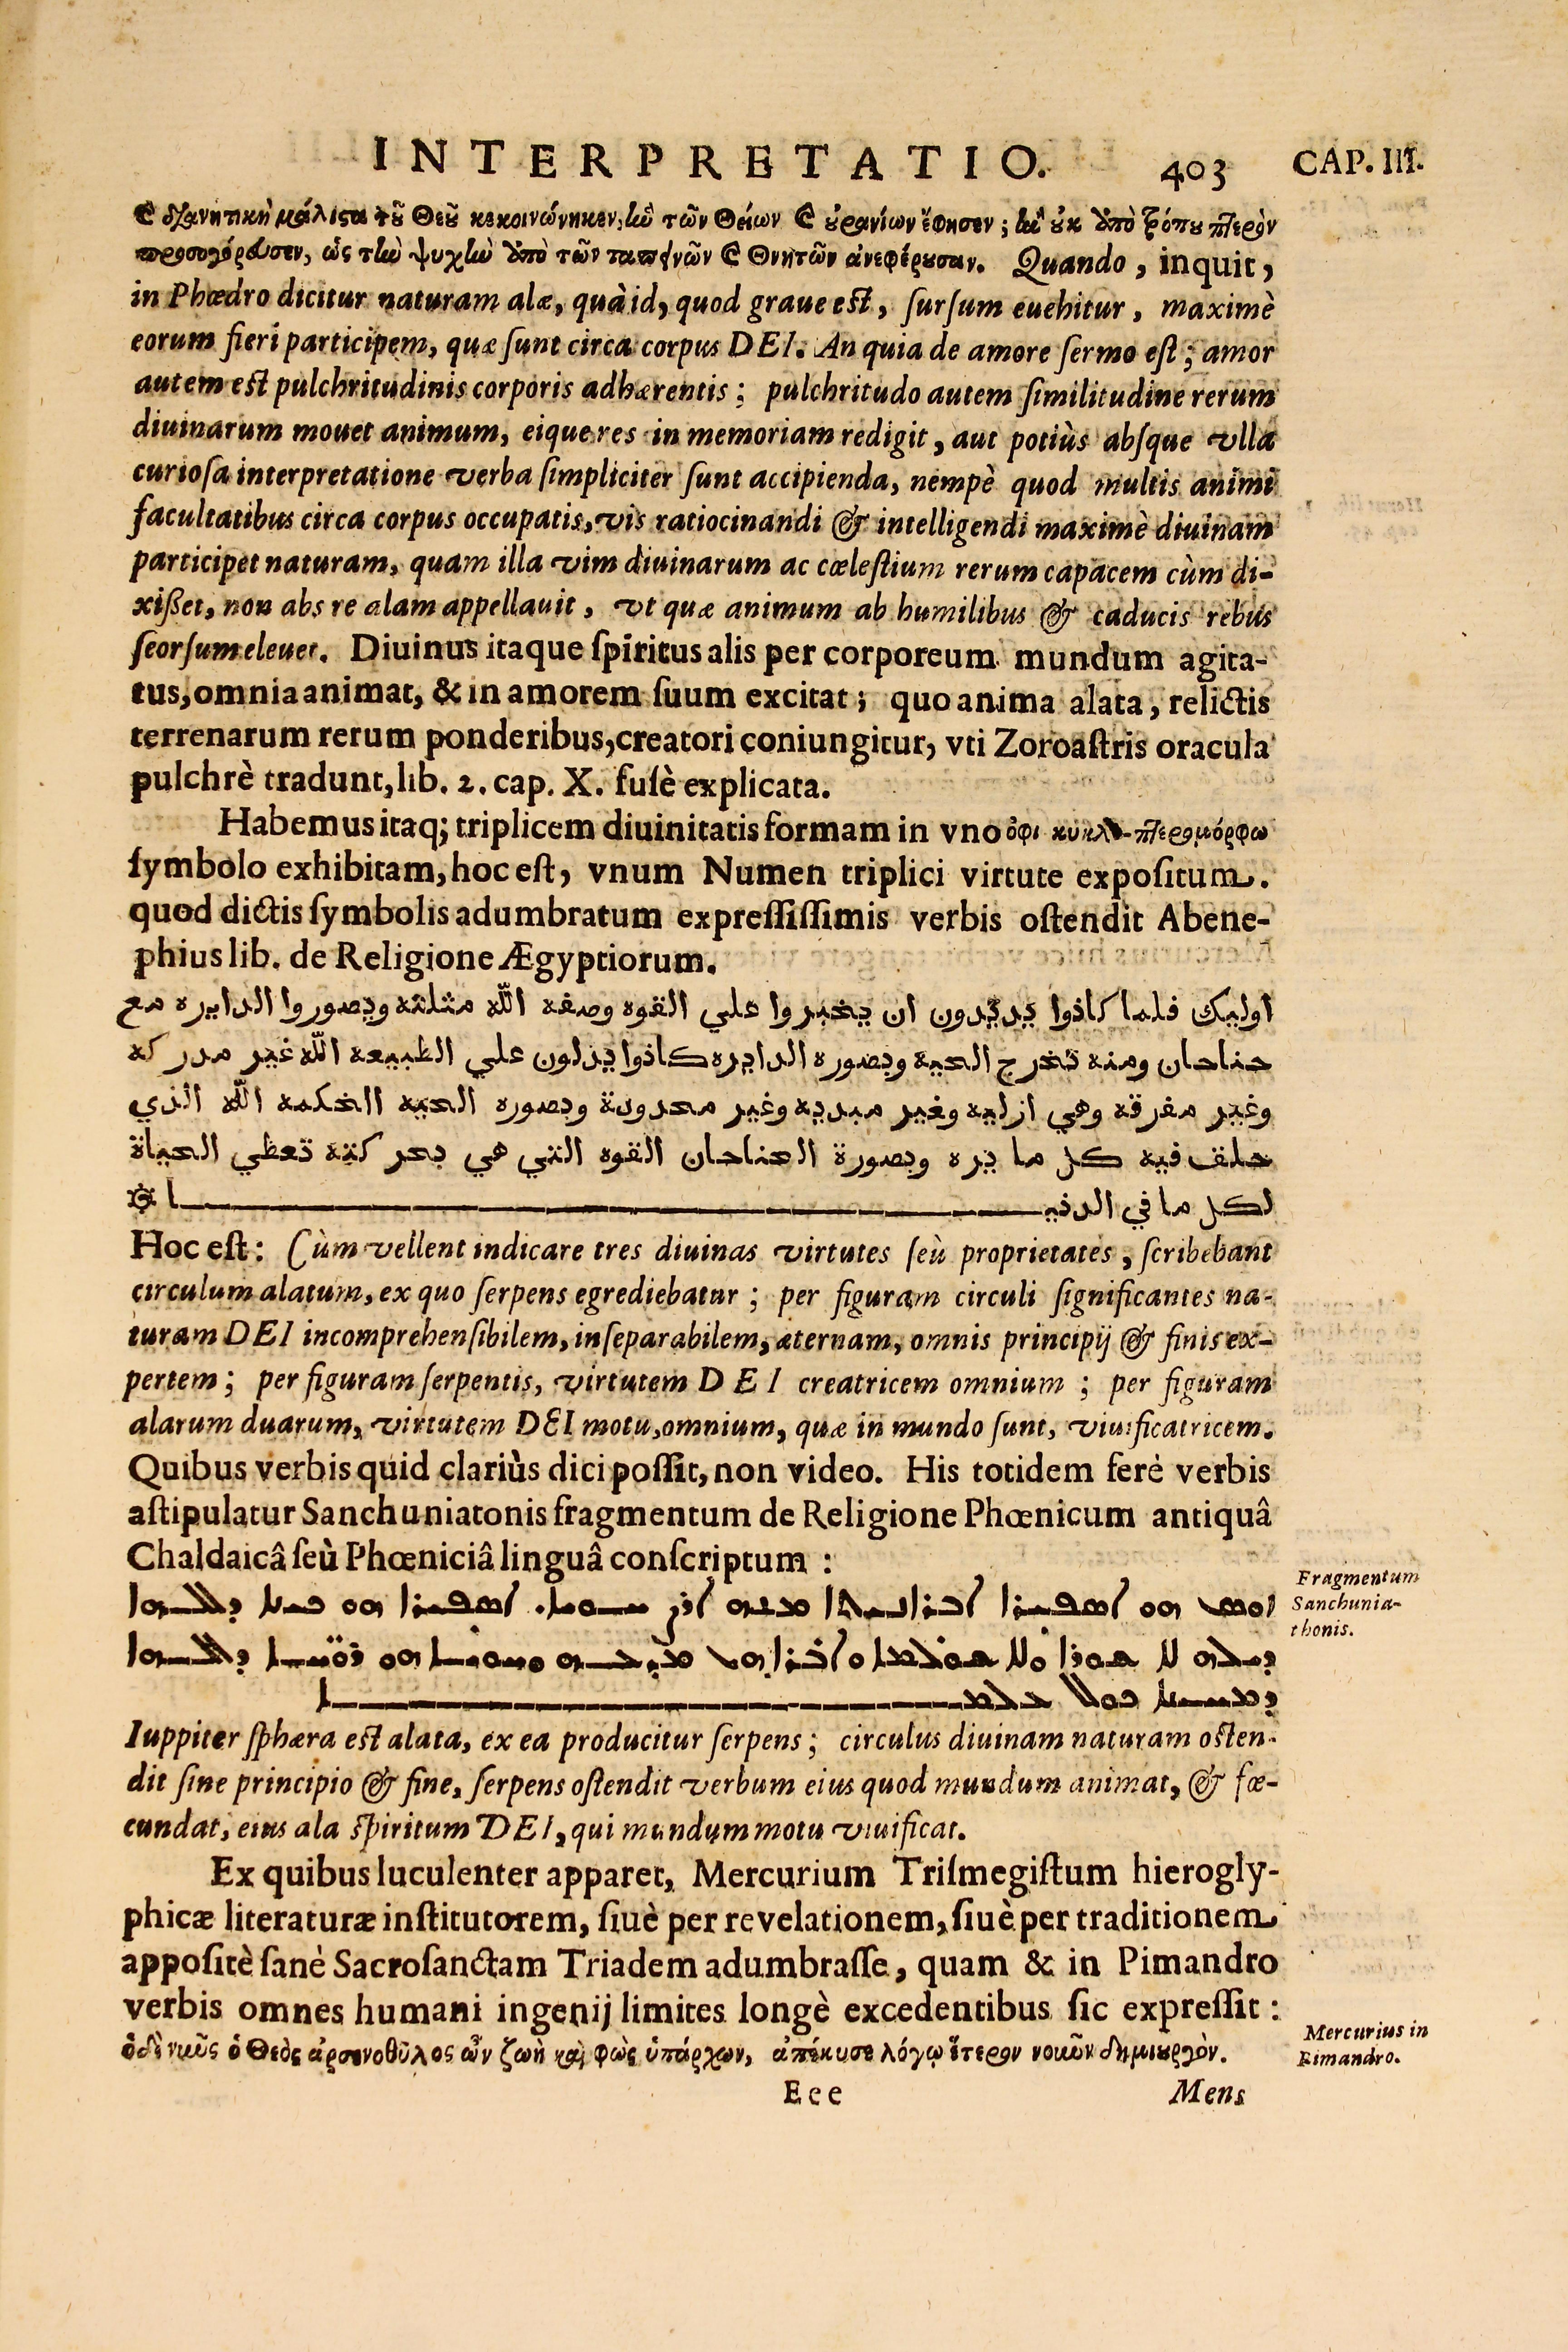 INTERPRETATIO. 403 CAP. III.
μάλιϛα τοῦ Θεοῦ κεκοινώνηκεν, τῶν Θείων ἔφησεν;
ὡς τὴν ψυχὴν ἀπὸ τῶν ταπεινῶν Θνητῶν ἀνεφέρουσαν. Quando, inquit,
in Phœdro dicitur naturam alæ, quà id, quod graue est, ſurſum euehitur, maximè
eorum fieri participem, quæ ſunt circa corpus DEI. An quia de amore ſermo eſt; amor
autem est pulchritudinis corporis adhærentis; pulchritudo autem ſimilitudine rerum
diuinarum mouet animum, eique res in memoriam redigit, aut potiùs abſque vlla
curioſa interpretatione verba ſimpliciter ſunt accipienda, nempè quod multis animi
facultatibus circa corpus occupatis, vis ratiocinandi & intelligendi maximè diuinam
participet naturam, quam illa vim diuinarum ac cœleſtium rerum capacem cùm di-
xißet, non abs re alam appellauit, vt quæ animum ab humilibus & caducis rebus
ſeorſum eleuet. Diuinus itaque ſpiritus alis per corporeum mundum agita-
tus, omnia animat, & in amorem ſuum excitat; quo anima alata, relictis
terrenarum rerum ponderibus, creatori coniungitur, vti Zoroaſtris oracula
pulchrè tradunt, lib. 2. cap. X. fuſè explicata.
Habemus itaq; triplicem diuinitatis formam in vno ὀφι
ſymbolo exhibitam, hoc eſt, vnum Numen triplici virtute expoſitum.
quod dictis ſymbolis adumbratum expreſſiſſimis verbis oſtendit Abene-
phius lib. de Religione Ægyptiorum.
اوليك فلما كانوا يريدون ان يخبروا علي القوه وصفه الله مثلثه ويصوروا الدايره مع
جناحان ومنه تخرج الحيه وبصوره الدايره كانوا يدلون علي الطبيعه الله غير مدركه
وغير مفرقه وهي ازليه وغير مبديه وغير محدودة وبصوره الحيه الحكمه الله الذي
خلق فيه كل ما يره وبصورة الجناحان القوه التي هي بحركته تعطي الحياة
لكل ما في الدنيا
Hoc eſt: Cùm vellent indicare tres diuinas virtutes ſeù proprietates, ſcribebant
circulum alatum, ex quo ſerpens egrediebatur; per figuram circuli ſignificantes na-
turam DEI incomprehenſibilem, inſeparabilem, æternam, omnis principij & finis ex-
pertem; per figuram ſerpentis, virtutem DEI creatricem omnium; per figuram
alarum duarum, virtutem DEI motu, omnium, quæ in mundo ſunt, viuificatricem.
Quibus verbis quid clariùs dici poſſit, non video. His totidem ferè verbis
aſtipulatur Sanchuniatonis fragmentum de Religione Phœnicum antiquâ
Chaldaicâ ſeù Phœniciâ linguâ conſcriptum:
Fragmentum
Sanchunia-
thonis.
Iuppiter ſphæra est alata, ex ea producitur ſerpens; circulus diuinam naturam oſten-
dit ſine principio & fine, ſerpens oſtendit verbum eius quod mundum animat, & fœ-
cundat, eius ala ſpiritum DEI, qui mundum motu viuificat.
Ex quibus luculenter apparet, Mercurium Triſmegiſtum hierogly-
phicæ literaturæ inſtitutorem, ſiuè per revelationem, ſiuè per traditionem
appoſitè ſanè Sacroſanctam Triadem adumbraſſe, quam & in Pimandro
verbis omnes humani ingenij limites longè excedentibus ſic expreſſit:
ὁ δὲ νοῦς ὁ Θεὸς ἀρσενοθῦλος ὢν ζωὴ καὶ φῶς ὑπάρχων, ἀπέκυσε λόγῳ ἕτερον νοῦν δημιουργὸν.
Mercurius in
Pimandro.
Eee Mens